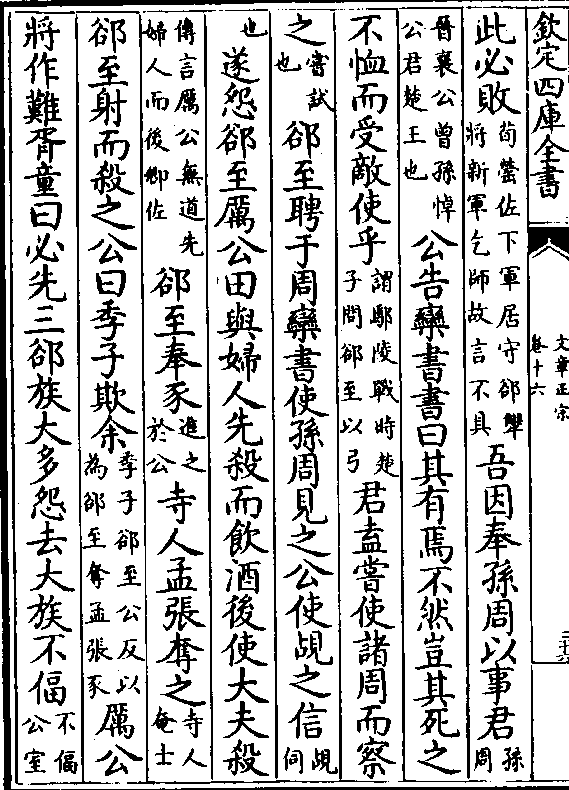 欽定四庫全書
文章正宗
卷十六
此必敗荀罃佐下軍居守郤犫將新軍乞師故言不具吾因奉孫周以事君孫周
晉襄公曾孫悼公君楚王也公告欒書書曰其有焉不然豈其死之
不恤而受敵使乎謂鄢陵戰時楚子問郤至以弓君盍嘗使諸周而察
之嘗試也郤至聘于周欒書使孫周見之公使覘之信覘伺
也遂怨郤至厲公田與婦人先殺而飲酒後使大夫殺
傳言厲公無道先婦人而後卿佐郤至奉豕進之於公寺人孟張奪之寺人奄士
郤至射而殺之公曰季子欺余季子郤至公反以為郤至奪孟張豕厲公
將作難胥童曰必先三郤族大多怨去大族不偪不偪公室